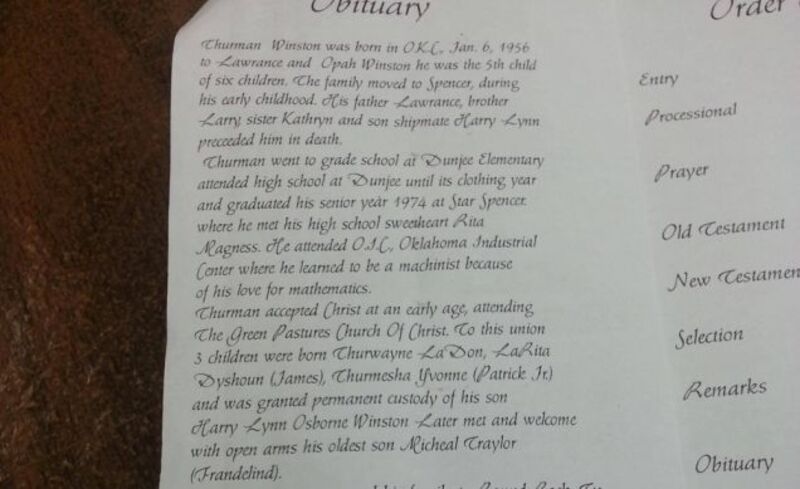 Obituary
Thurman Winston was born in O.K.C., Jan. 6, 1956
to Lawrance and Opah Winston he was the 5th child
of six children. The family moved to Spencer, during
his early childhood. His father Lawrance, brother
Larry, sister Kathryn and son shipmate Harry Lynn
preceeded him in death.
Thurman went to grade school at Dunjee Elementary
attended high school at Dunjee until its clothing year
and graduated his senior year 1974 at Star Spencer.
where he met his high school sweetheart Rita
Magness. He attended O.I.C, Oklahoma Industrial
Center where he learned to be a machinist because
of his love for mathematics.
Thurman accepted Christ at an early age, attending
The Green Pastures Church Of Christ. To this union
3 children were born Thurwayne LaDon, LaRita
Dyshoun (James), Thurmesha Yvonne (Patrick Jr.)
and was granted permanent custody of his son
Harry Lynn Osborne Winston Later met and welcome
with open arms his oldest son Micheal Traylor
(Frandelind).
Order
Entry
Processional
Prayer
Old Testament
New Testamen
Selection
Remarks
Obituary